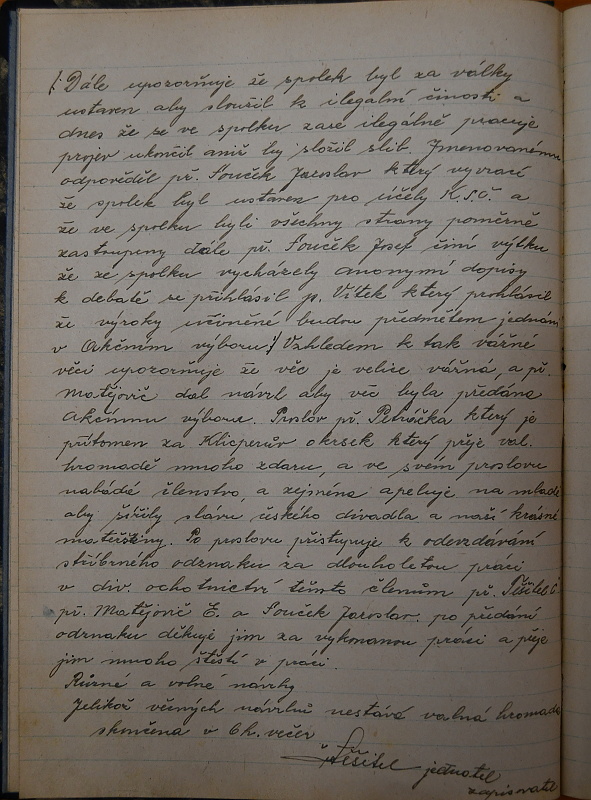 /: Dále upozorňuje že spolek byl za války
ustaven aby sloužil k ilegalní činosti a
dnes že se ve spolku zase ilegálně pracuje
projev ukončil aniž by složil slib. Jmenovanému
odpověděl př. Souček Jaroslav který vyvrací
že spolek byl ustaven pro účely K.S.Č. a
že ve spolku byli všechny strany poměrně
zastoupeny dále př. Souček Josef činí výtku
že ze spolku vycházely anonymí dopisy
k debatě se přihlásil p. Vítek který prohlásil
že výroky učiněné budou předmětem jednání
v Akčním výboru :/ Vzhledem k tak vážné
věci upozorňuje že věc je velice vážná, a př.
Matějovič dal návrh aby věc byla předána
akčnímu výboru. Proslov př. Petráčka který je
přítomen za Klicperův okrsek který přeje val.
hromadě mnoho zdaru, a ve svém proslovu
nabádá členstvo, a zejména apeluje na mladé
aby šířily slávu českého divadla a naší krásné
mateřštiny. Po proslovu přistupuje k odevzdávání
stříbrného odznaku za dlouholetou práci
v div. ochotnictví těmto členům př.
př. Matějovič E. a Souček Jaroslav. po předání
odznaku děkuje jim za vykonanou práci a přeje
jim mnoho štěstí v práci.
Různé a volné návrhy
Jelikož věcných návrhů nestává valná hromada
skončena v 6 h. večer
jednatel
zapisovatel